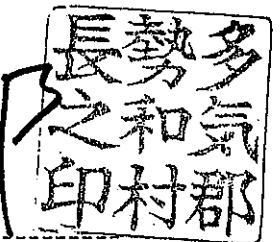 多気郡
勢和村
長之印